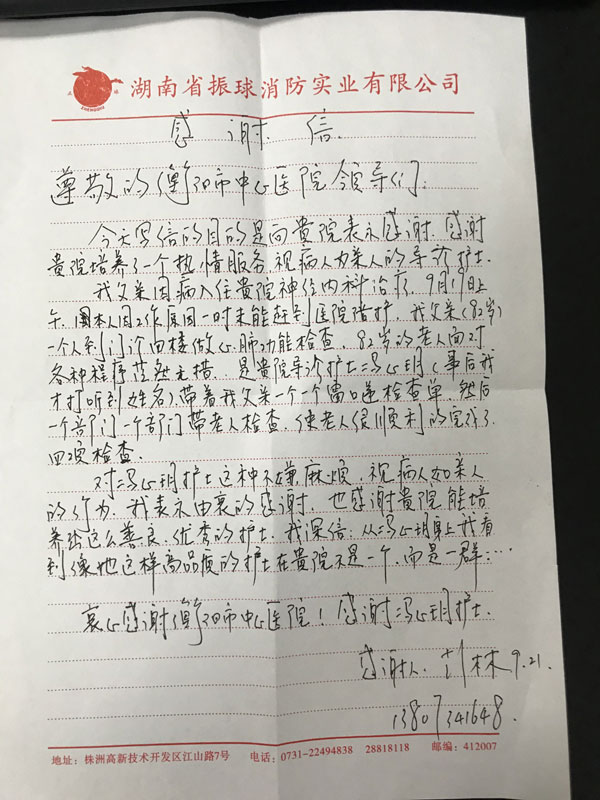 湖南省振球消防实业有限公司
感谢信
尊敬的衡阳市中心医院领导们:
今天写信的目的是向贵院表示感谢.感谢
贵院培养了一个热情服务,视病人为亲人的导诊护士.
我父亲因病入住贵院神经内科治疗,9月19日上
午,因本人因工作原因一时未能赶到医院陪护,我父亲(82岁)
一个人到门诊四楼做心肺功能检查,82岁的老人面对
各种程序茫然无措,是贵院导诊护士冯心玥(事后我
才打听到姓名)带着我父亲一个一个窗口递检查单,然后
一个部门一个部门带老人检查,使老人很顺利的完成了
四项检查.
对冯心玥护士这种不嫌麻烦,视病人如亲人
的行为,我表示由衷的感谢,也感谢贵院能培
养出这么善良,优秀的护士,我深信,从冯心玥身上我看
到像她这样高品质的护士在贵院不是一个,而是一群…
衷心感谢衡阳市中心医院!感谢冯心玥护士.
感谢人: 林 9.21.
13807341648.
地址:株洲高新技术开发区江山路7号 电话:0731-22494838 28818118 邮编:412007